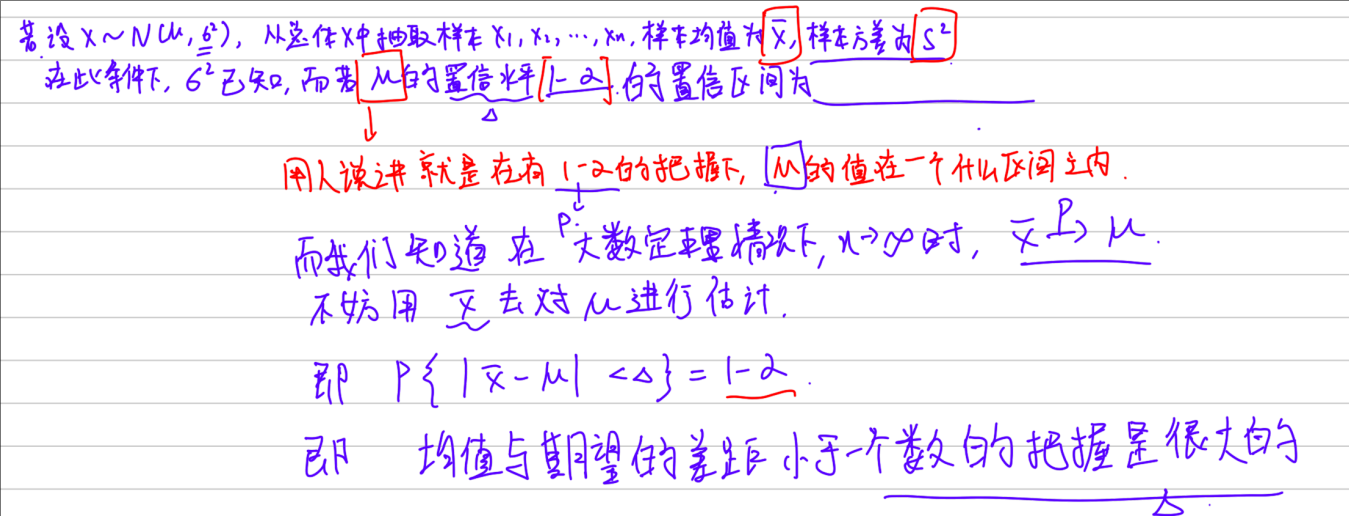 若设 X~N(μ,σ²), 从总体X中抽取样本 X₁,X₂,…,Xn, 样本均值为 x̄, 样本方差为 S²
在此条件下, σ²已知, 而若 μ的置信水平 1-α 的置信区间为
Δ
用人话讲就是在有 1-α 的把握下, μ的值在一个什么区间之内.
P.
而我们知道 在 大数定理情况下, n→∞时, x̄ P→ μ.
不妨用 x̄ 去对 μ 进行估计.
即 P{ |x̄-μ| <Δ} = 1-α.
即 均值与期望的差距小于一个数的把握是很大的
Δ.